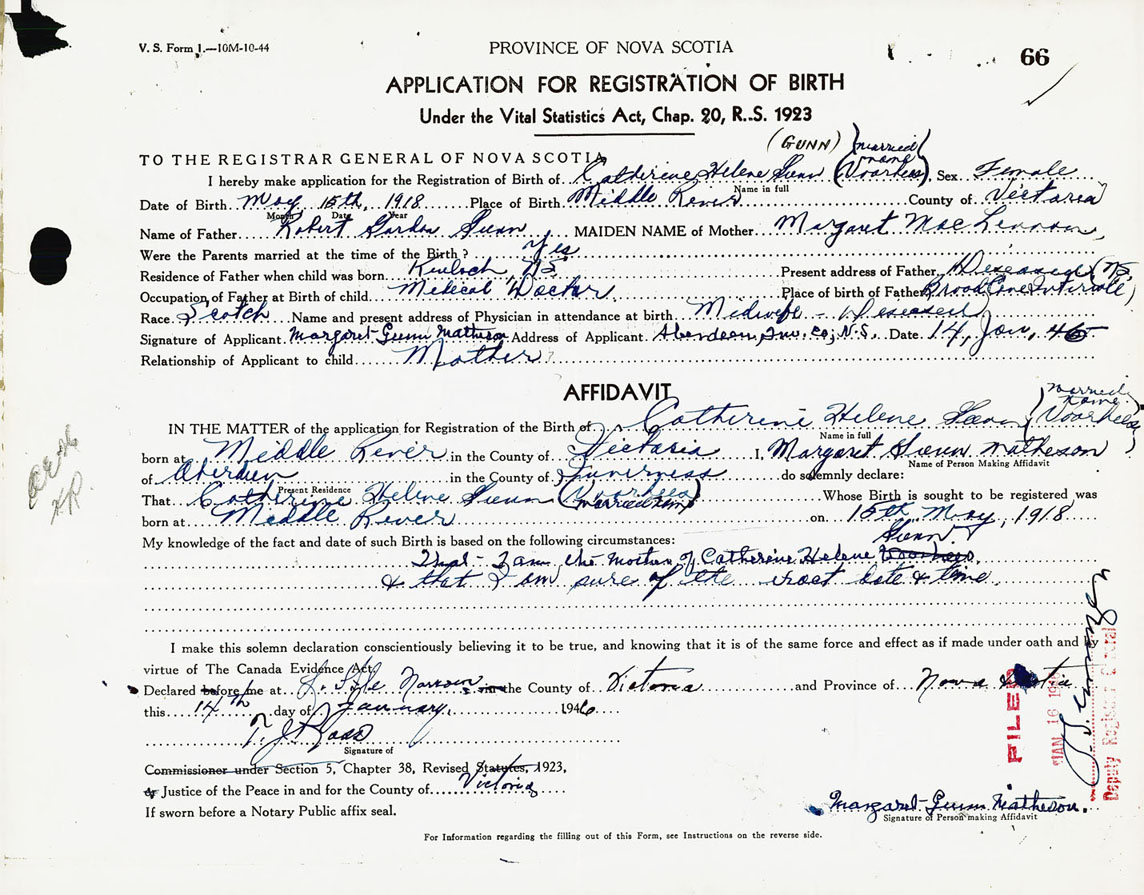 V. S. Form 1.—10M-10-44
PROVINCE OF NOVA SCOTIA
66
APPLICATION FOR REGISTRATION OF BIRTH
Under the Vital Statistics Act, Chap. 20, R..S. 1923
(GUNN) (married name
TO THE REGISTRAR GENERAL OF NOVA SCOTIA
I hereby make application for the Registration of Birth of Catherine Helene Gunn (Voorhees) Sex Female
Name in full
Date of Birth May 15th, 1918 Place of Birth Middle River County of Victoria
Month Date Year
Name of Father Robert Gordon Gunn MAIDEN NAME of Mother Margaret MacLennan
Were the Parents married at the time of the Birth? Yes
Residence of Father when child was born Kinloch, NS Present address of Father Deceased (NS
Occupation of Father at Birth of child Medical Doctor Place of birth of Father Broad Cove Intervale)
Race Scotch Name and present address of Physician in attendance at birth Midwife - Deceased
Signature of Applicant Margaret Gunn Matheson Address of Applicant Aberdeen, Inv. Co; N.S. Date 14, Jan, 46
Relationship of Applicant to child Mother
AFFIDAVIT
(married name
IN THE MATTER of the application for Registration of the Birth of Catherine Helene Gunn (Voorhees)
Name in full
born at Middle River in the County of Victoria I, Margaret Gunn Matheson
Name of Person Making Affidavit
of Aberdeen in the County of Inverness do solemnly declare:
Present Residence
That Catherine Helene Gunn (Voorhees) Whose Birth is sought to be registered was
married name
born at Middle River on 15th May, 1918
My knowledge of the fact and date of such Birth is based on the following circumstances:
Gunn
That - I am the mother of Catherine Helene Voorhees
& that I am sure of the exact date & time
I make this solemn declaration conscientiously believing it to be true, and knowing that it is of the same force and effect as if made under oath and by
virtue of The Canada Evidence Act.
Declared before me at L. Isle Narrows in the County of Victoria and Province of Nova Scotia
this 14th day of January, 1946
T. J. Ross
Signature of
Commissioner under Section 5, Chapter 38, Revised Statutes, 1923,
or Justice of the Peace in and for the County of Victoria
If sworn before a Notary Public affix seal.
Margaret Gunn Matheson.
Signature of Person making Affidavit
For Information regarding the filling out of this Form, see Instructions on the reverse side.
FILED
JAN 16
Deputy Registrar General